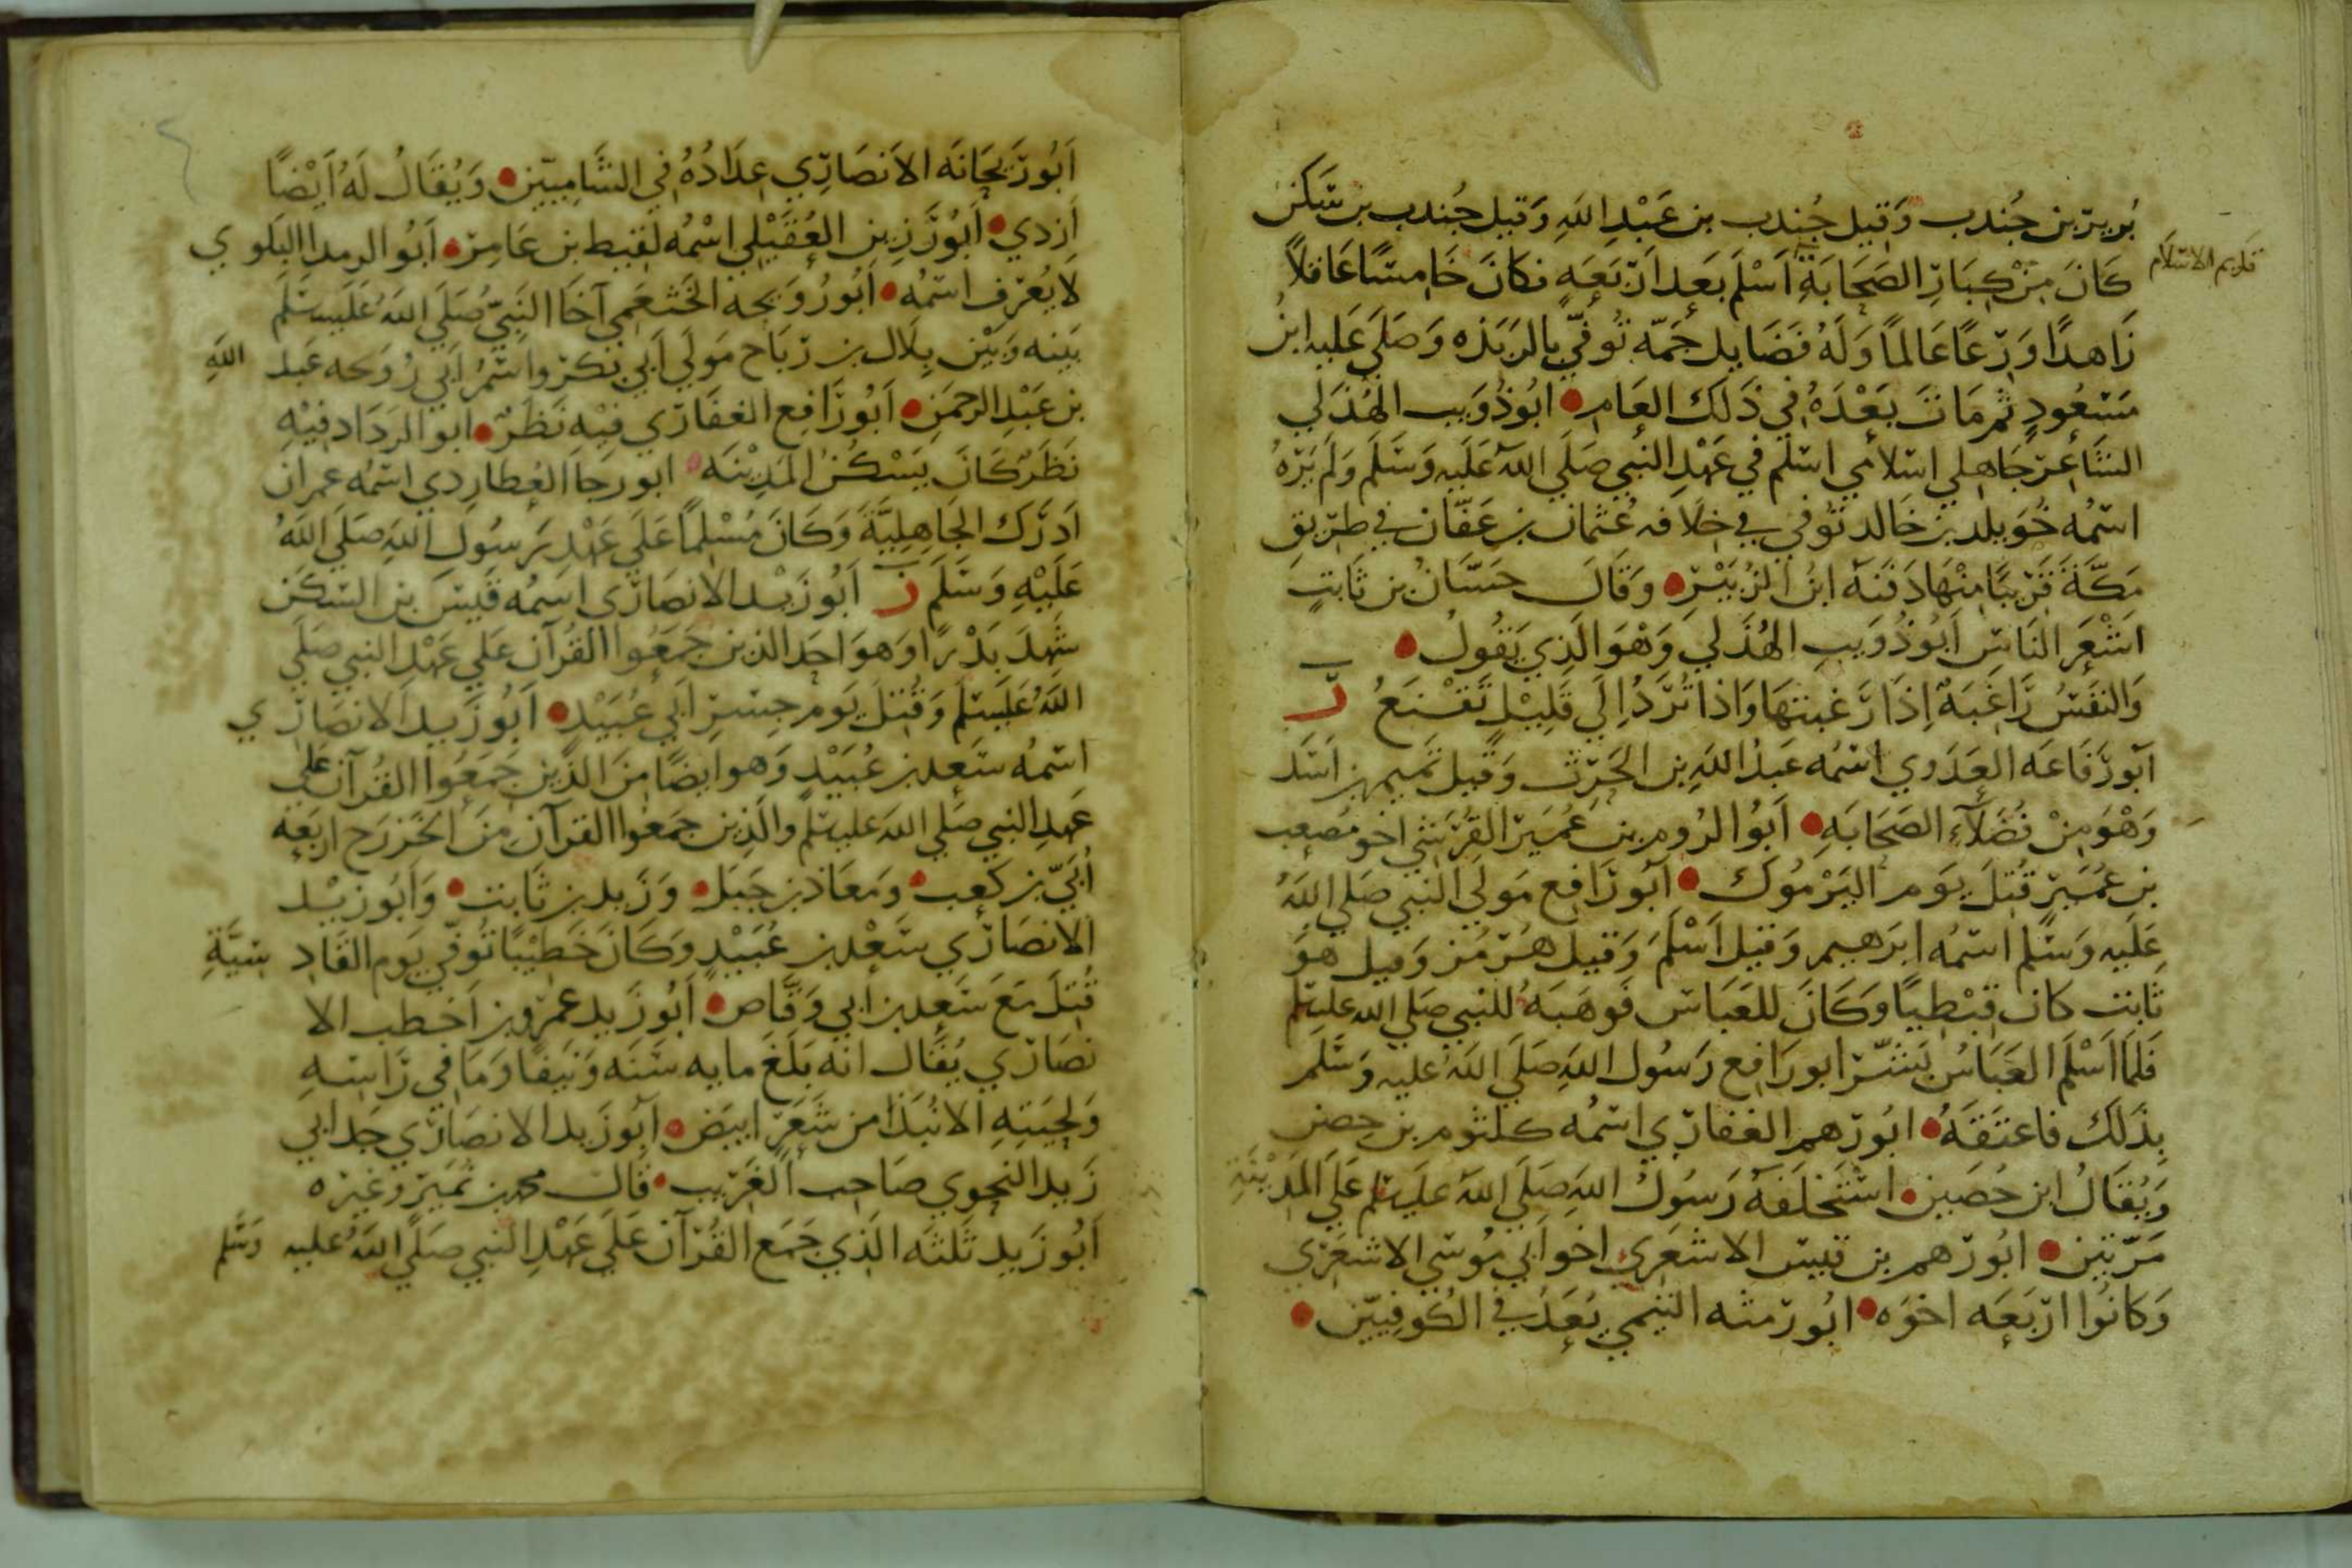 بُرير بن جُندب وَقيل جُندب بن عَبْدِ اللهِ وَقيل جُندب بن سَكَن
قديم الاسلام
كَانَ مِنْ كِبَارِ الصَحَابَةِ اَسْلَمَ بَعدَ اَرْبَعَهٍ فكانَ خَامسًا عَاقلاً
زَاهدًا وَرِعًا عَالمًا وَلَهُ فَضَايل جَمّه تُوفّيَ بالرَبَذه وَصَلَى عَليه ابنُ
مَسْعُودٍ ثم مَاتَ بَعْدَهُ في ذَلكَ العَام ابُو ذُوَيب الهُذَلي
الشَاعر جَاهِلي اسلامي اسلم في عَهْدِ النبي صَلَى اللهُ عَلَيه وَسَلم وَلم يَرَهُ
اسمُه خُوَيلد بن خَالد توفي في خلافه عُثمان بن عَفّان في طريق
مَكَّةَ قَريبًا مِنْهَا دَفَنَهُ ابنُ الزُبَيْرِ وَقَالَ حَسَّانُ بن ثَابتٍ
اَشْعَرَ النَاسِ اَبُو ذُوَيبٍ الهُذَلي وَهْوَ الَذِي يَقُولُ
وَالنَفسُ رَاغَبَةٌ اِذَا رَغبتهَا وَاذَا تُرَدُ اِلَى قَلِيْلٍ تَقْنَعُ ر
اَبُو رَفَاعَه العَدَوي اسمُه عَبدُ اللهِ بن الحَرث وَقيل تَميم بن اَسَد
وَهْوَ مِنْ فُضَلآءِ الصَحَابَه اَبُو الرُوم بن عُمَير القُرَشي اخو مُصعب
بن عُمَير قُتلَ يَوم اليَرْمُوك اَبُو رَافع مَولى النبي صَلى اللهُ
عَلَيه وَسَلم اسمُه ابرَهيم وَقيل اَسْلَمَ وَقيل هُرْمُز وَقيل هوَ
ثابت كان قِبْطِيًا وَكَانَ للعَبَاس فَوهَبَهُ للنبي صَلى الله عليه وسلم
فَلَمَا اَسْلَمَ العَبَاسُ بَشَّرَ ابو رَافع رَسُول اللهِ صَلَى اللهُ عليه وَسَلم
بذَلكَ فاعتَقَهُ ابُو رُهم الغفاري اسمُه كلثوم بن حِصن
وَيُقَالُ ابن حُصَين استَخلَفَهُ رَسُولُ اللهِ صَلى اللهُ عليه وسلم عَلَى المَدْيْنَةِ
مَرّتَين ابُو رُهم بن قيس الاشعَري اخو اَبي مُوسَى الاشعَري
وَكانُوا اربَعَه اخوَه ابُو رمثه التيمي يُعَدُ في الكُوفيّين
اَبُو رَيحَانَه الاَنصَارِي عِدَادُهُ في الشَامِيّين وَيُقَالُ لَهُ اَيْضًا
اَزدي اَبُو رَزين العُقَيْلي اسْمُه لَقيط بن عَامِر اَبُو الرمدا البَلَوي
لا يُعْرَف اسمُه ابُو رُوَيحه الخَثعَمي آخَا النَبِيّ صَلَى اللهُ عَلَيه وسَلَم
بَينه وَبَيْنَ بِلَال بن رَبَاح مَولَى اَبي بَكر وَاسمُ اَبي رُوَيحه عَبد اللهِ
بن عَبْدِ الرحمَن اَبُو رَافِع الغفَاري فيْهِ نَظَرٌ ابو الرَدَاد فيْهِ
نَظَر كَانَ يَسْكُنُ المَدِيْنَه ابو رجا العُطاردي اسمُه عمران
اَدرَك الجَاهِلِيَّةَ وَكَانَ مُسْلِماً عَلَى عَهْدِ رَسُولِ اللهِ صَلَى اللهُ
عَلَيْهِ وَسَلَمَ ز اَبُو زَيْد الانصَاري اسمُه قَيس بن السَكَن
شَهِدَ بَدْرًا وَهوَ احَد الذين جَمَعُوا القُرآن عَلى عَهْدِ النبي صَلَى
اللهُ عَلَيه وسلم وَقُتلَ يَوم جسْرِ اَبي عُبَيْد اَبُو زَيد الانصَاري
اسمُه سَعد بن عُبَيْدٍ وَهو ايضًا مِنَ الذِين جَمَعُوا القُرآن عَلى
عَهدِ النبي صَلى اللهُ عَليه وسلم والَذِين جَمَعوا القرآن مِنَ الخَزرَج اربَعَه
اُبَيّ بن كَعب وَمعَاذ بن جَبَل وَزَيد بن ثَابت وَاَبُو زَيْد
الانصَاري سَعْد بن عُبَيْدٍ وَكَانَ خَطِيْبًا تُوفّيَ يَوم القَادسيَّةِ
قُتلَ مَعَ سَعد بن اَبي وَقَّاص اَبُو زَيد عَمرو بن اَخطب الا
نصَاري يُقَال انه بَلَغَ مايه سَنَه وَنَيفًا وَمَا في رَاسِهِ
وَلحِيَتِهِ الا نُبَذًا من شَعَر ابيَض اَبُو زَيد الانصَاري جَد ابي
زَيد النحوي صَاحِب الغَريب قالَ محمد بن نُمَير وَغيره
اَبُو زَيد ثَلثَه الَذي جَمَع القُرْآن عَلَى عَهْدِ النَبي صَلَى اللهُ عليه وَسَلم